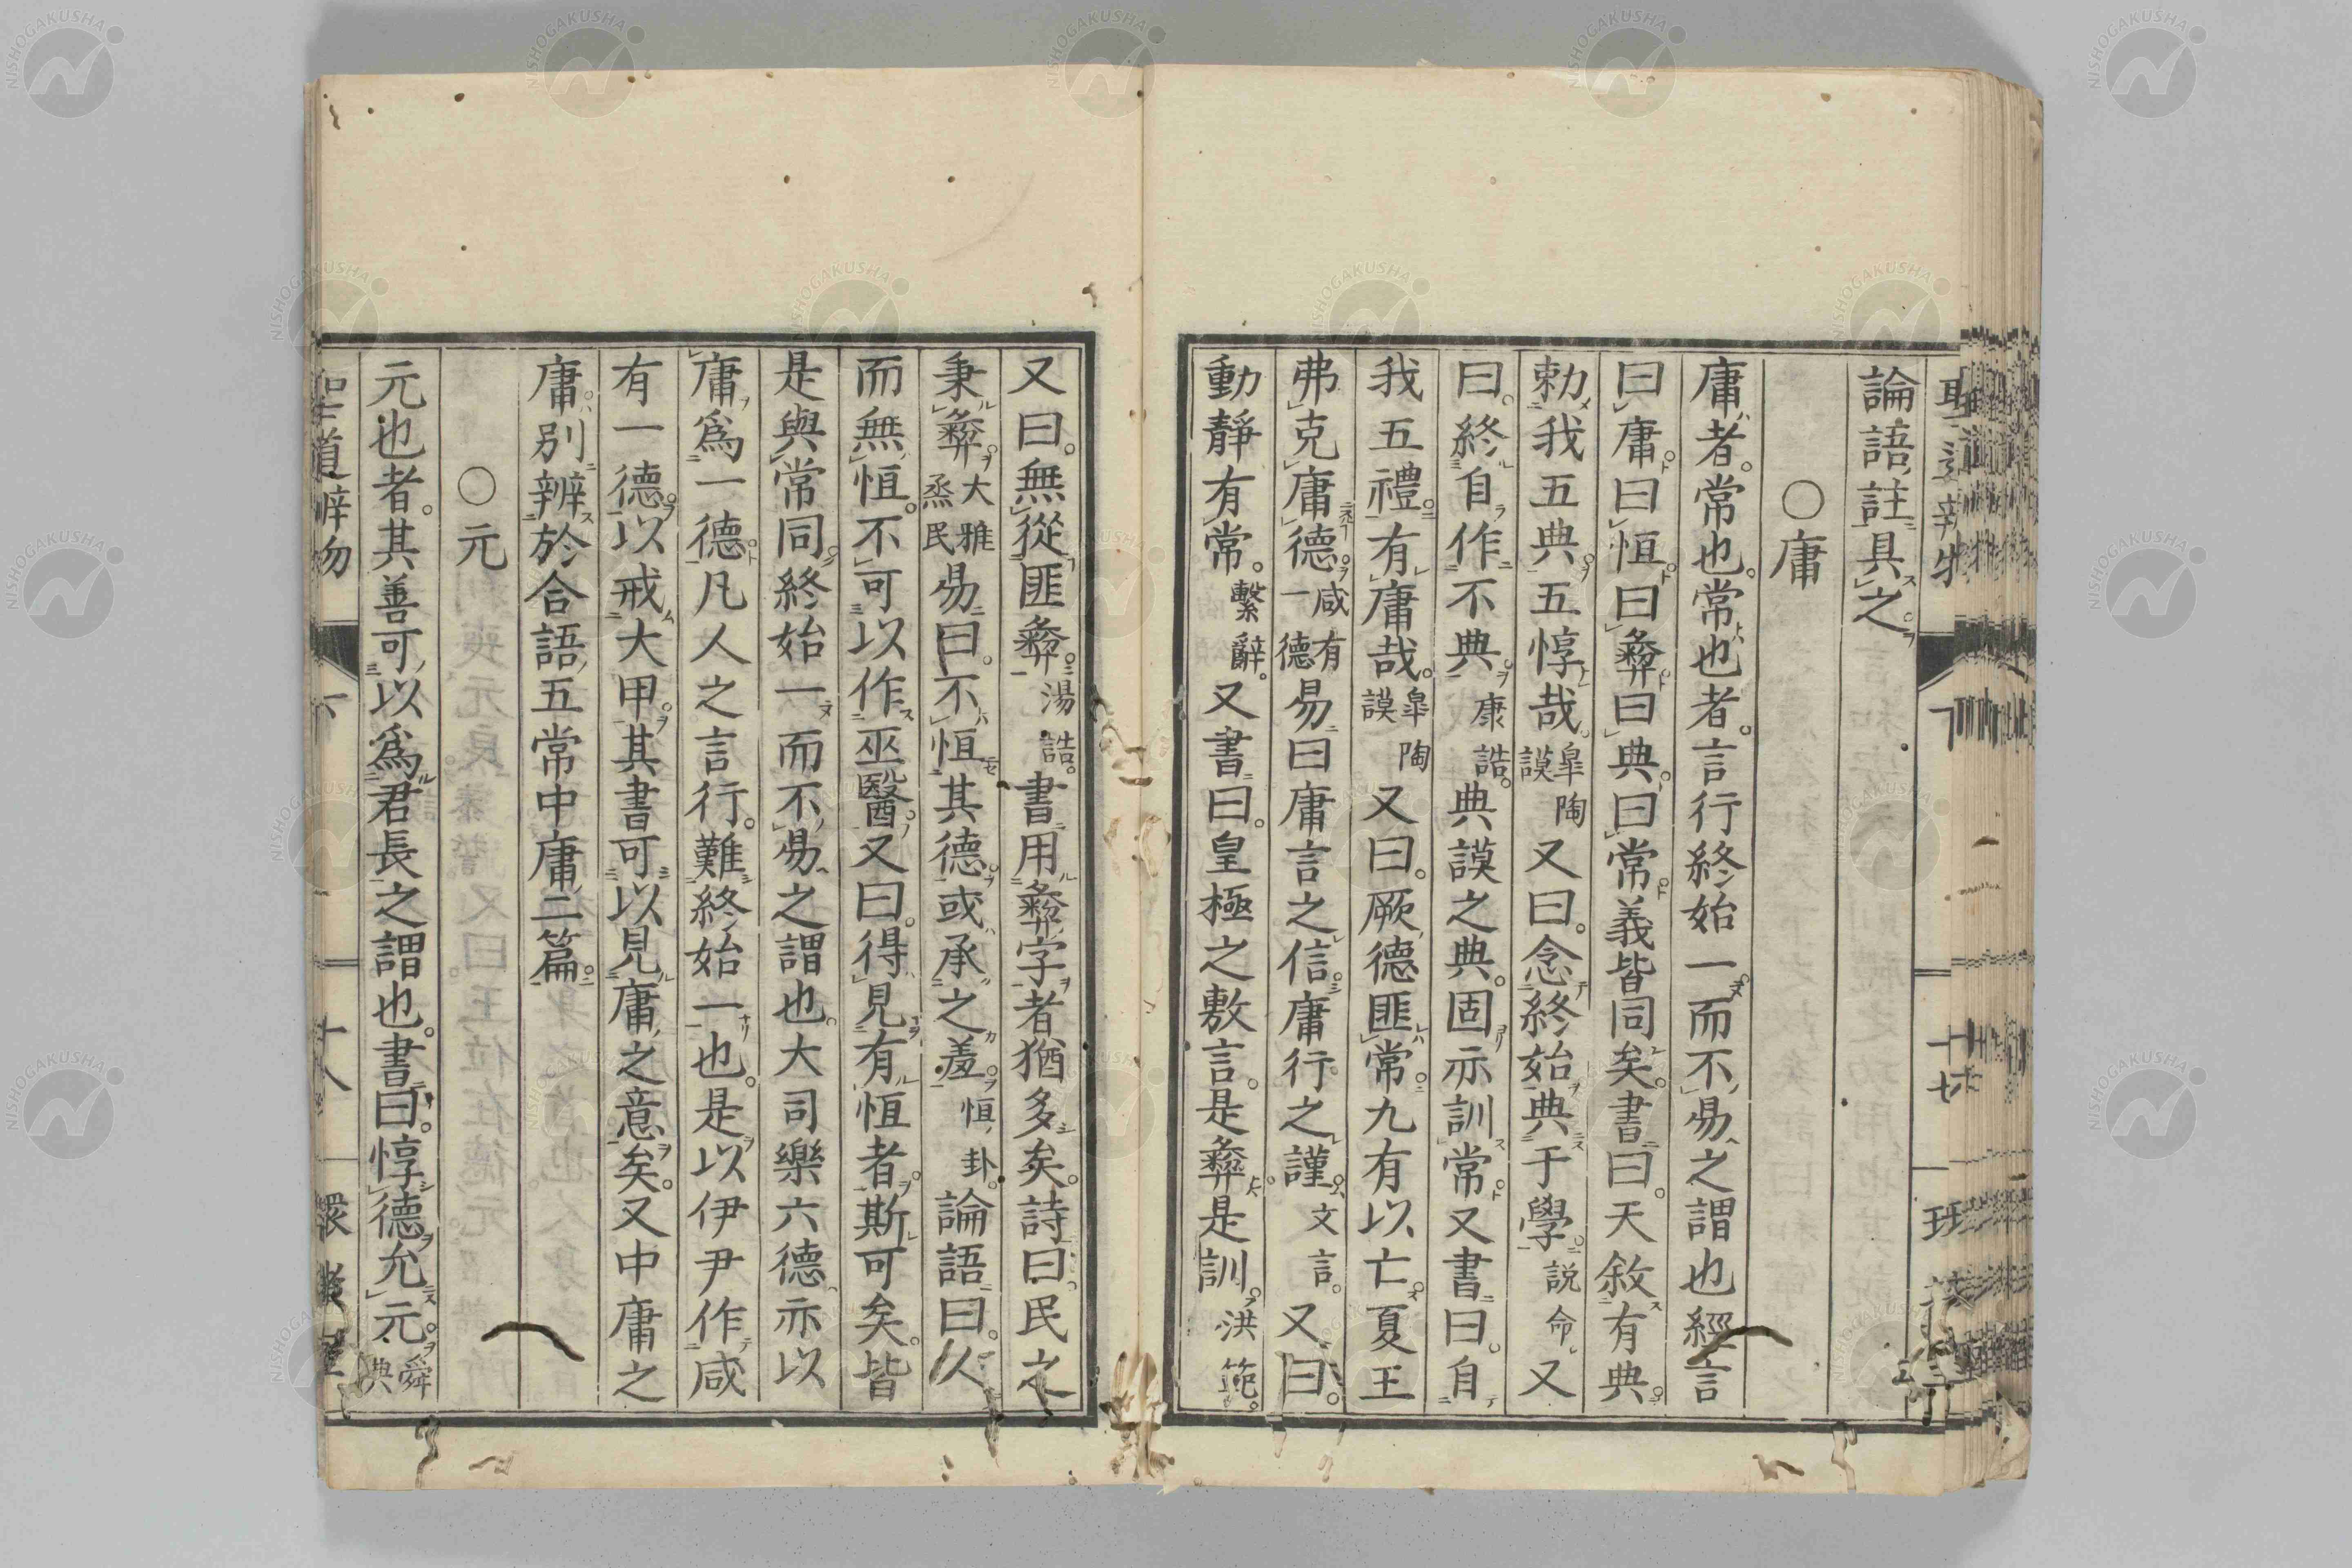 論語註具之
○庸
庸者。常也。常也者。言行終始一而不易之謂也經言
曰庸。曰恒。曰彝。曰典。曰常。義皆同矣。書曰。天敘有典。
勅我五典。五惇哉。皐陶謨又曰。念終始典于學。説命。又
曰。終自作不典。康誥。典謨之典。固示訓常。又書曰。自
我五禮。有庸哉。皐陶謨又曰。厥德匪常。九有以亡。夏王
弗克庸德。咸有一德易曰庸言之信。庸行之謹。文言。又曰。
動靜有常。繫辭。又書曰。皇極之敷言。是彝。是訓。洪範。
又曰。無從匪彝。湯誥。書用彝字者猶多矣。詩曰。民之
秉彝。大雅烝民易曰。不恒其德。或承之羞。恒卦。論語曰。人
而無恒。不可以作巫醫。又曰。得見有恒者。斯可矣。皆
是與常同。終始一而不易之謂也。大司樂六德示以
庸爲一德。凡人之言行。難終始一也。是以伊尹作咸
有一德。以戒大甲。其書可以見庸之意矣。又中庸之
庸。別辨於合語五常中庸二篇。
○元
元也者。其善可以爲君長之謂也。書曰。惇德允元。舜典
聖道辨物 下 十八
聖道辨物 下 十七